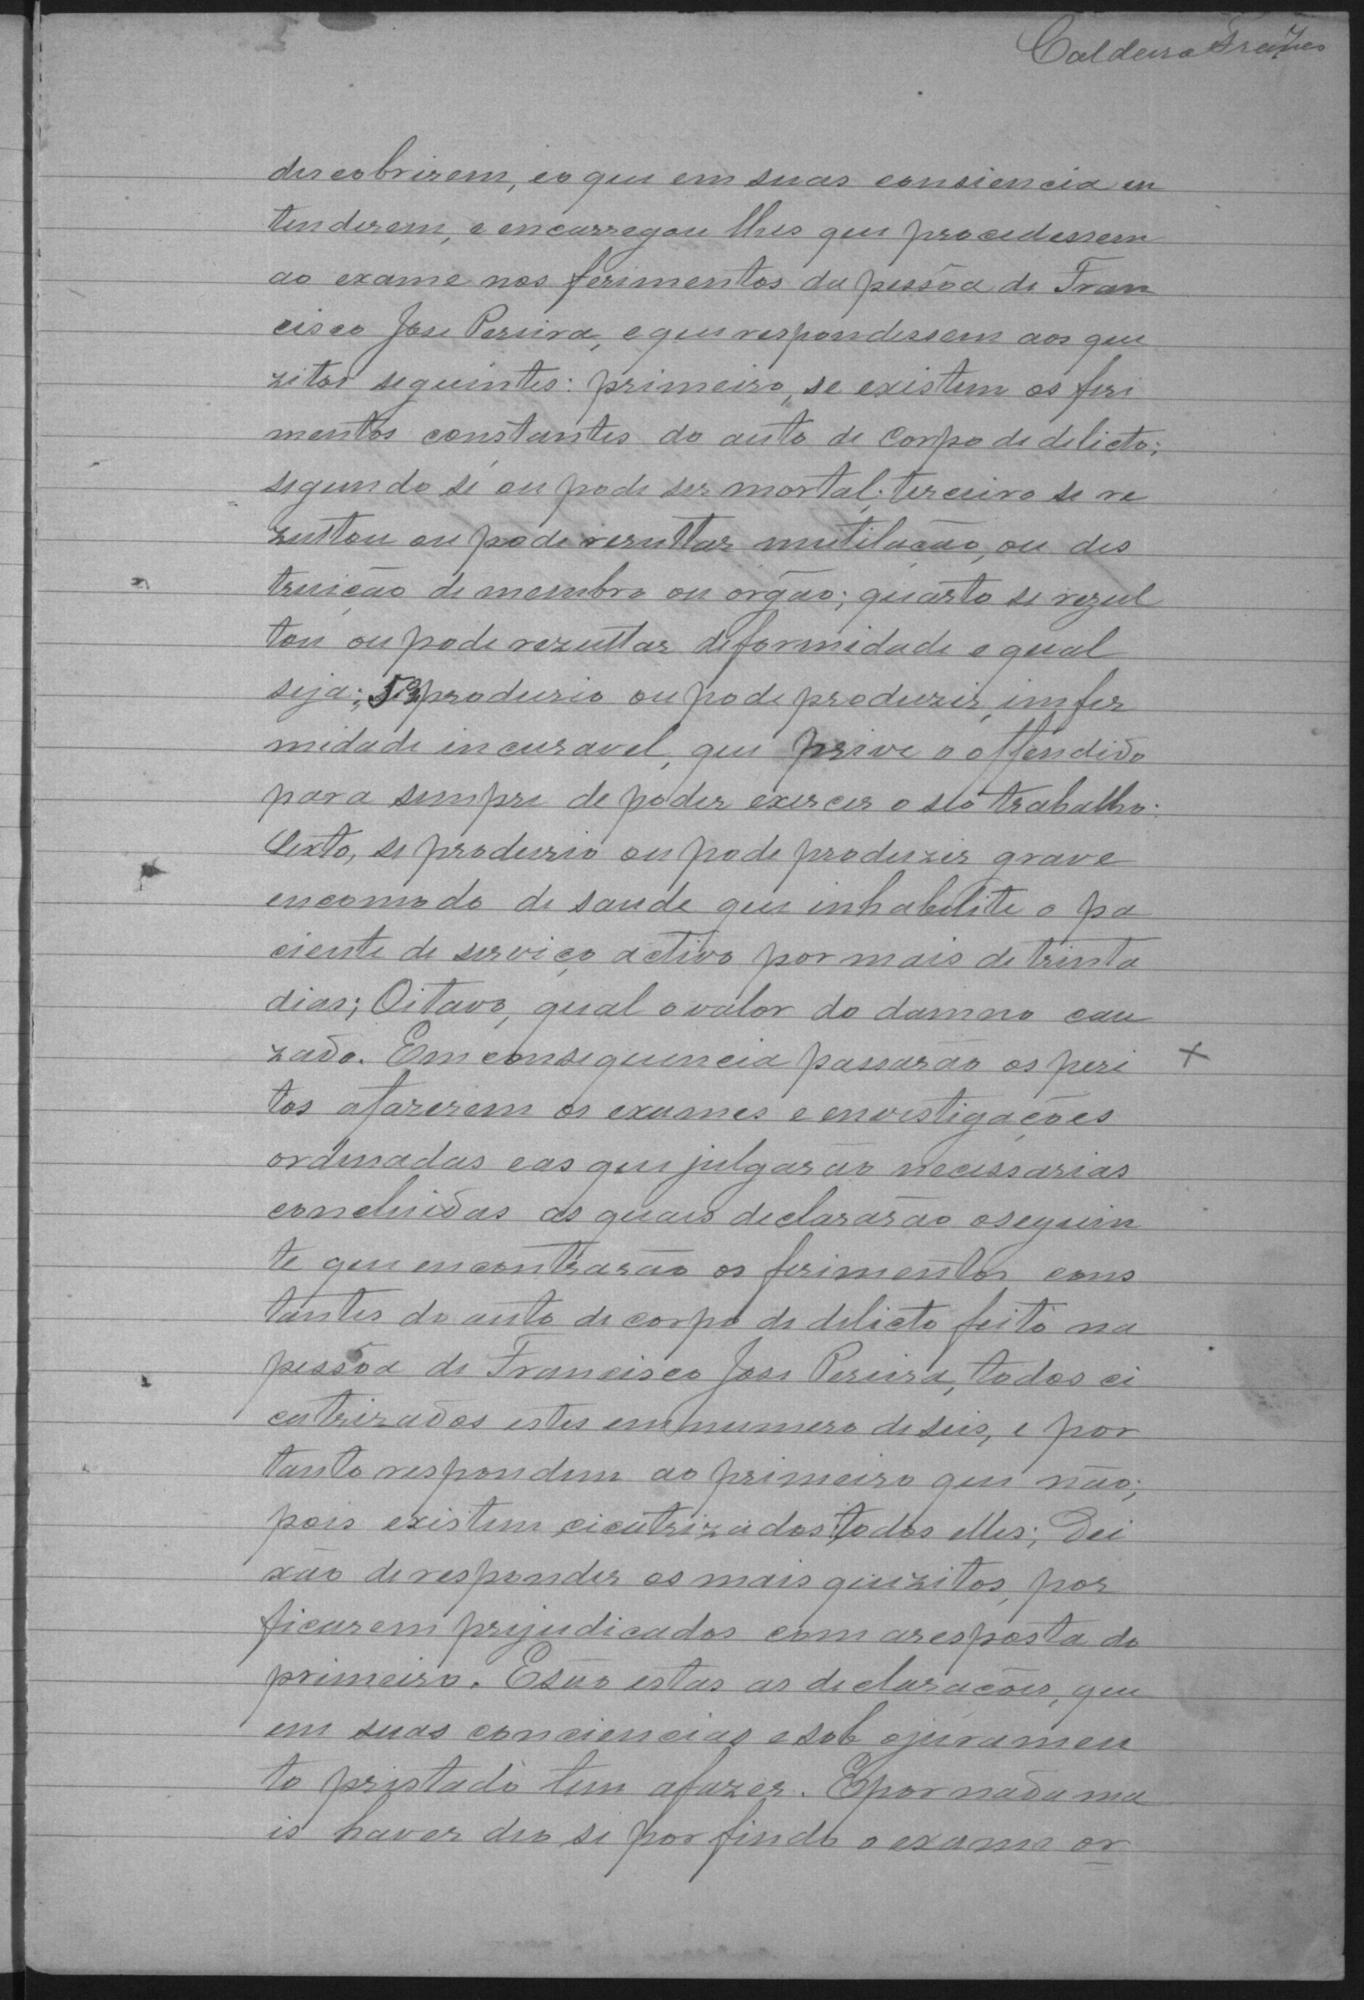 Caldeira
descobrirem, eo que em suas consiencia en
tenderem, e encarregou lhes que procedessem
ao exame nos ferimentos da pessôa de Fran
cisco Jose Pereira, e que respondessem aos que
zitos seguintes: primeiro, se existem os feri
mentos constantes do auto de Corpo de delicto;
segundo sé ou pode ser mortal; terceiro se re
zultou ou pode resultar mutilação, ou des
truição de membro ou orgão; quarto se rezul
tou ou pode rezultar deformidade e qual
seja; 5º produzio ou pode produzir, imfer
midade incuravel, que prive o offendido
para sempre de poder exercer o seo trabalho:
Sexto, se produzio ou pode produzir grave
encomodo de saude que inhabelite o pa
ciente de serviço activo por mais de trinta
dias; Oitavo, qual o valor do damno cau
zado. Em consequencia passarão os peri
tos afazerem os exames e envestigações
ordenadas eas que julgarão necessarias
concluidas as quais declararão oseguin
te que encontrarão os ferimentos cons
tantes do auto de corpo de delicto feito na
pessôa de Francisco Jose Pereira, todos ci
catrizados estes em numero de seis, e por
tanto respondem ao primeiro que não;
pois existem cicatrizados todos elles; Dei
xão de responder os mais quizitos, por
ficarem prijudicados com aresposta do
primeiro. Esão estas as declarações, que
em suas conciencias esob ojuramen
to pristado tem afazer. Epor nada ma
is haver deo se por findo o exame or